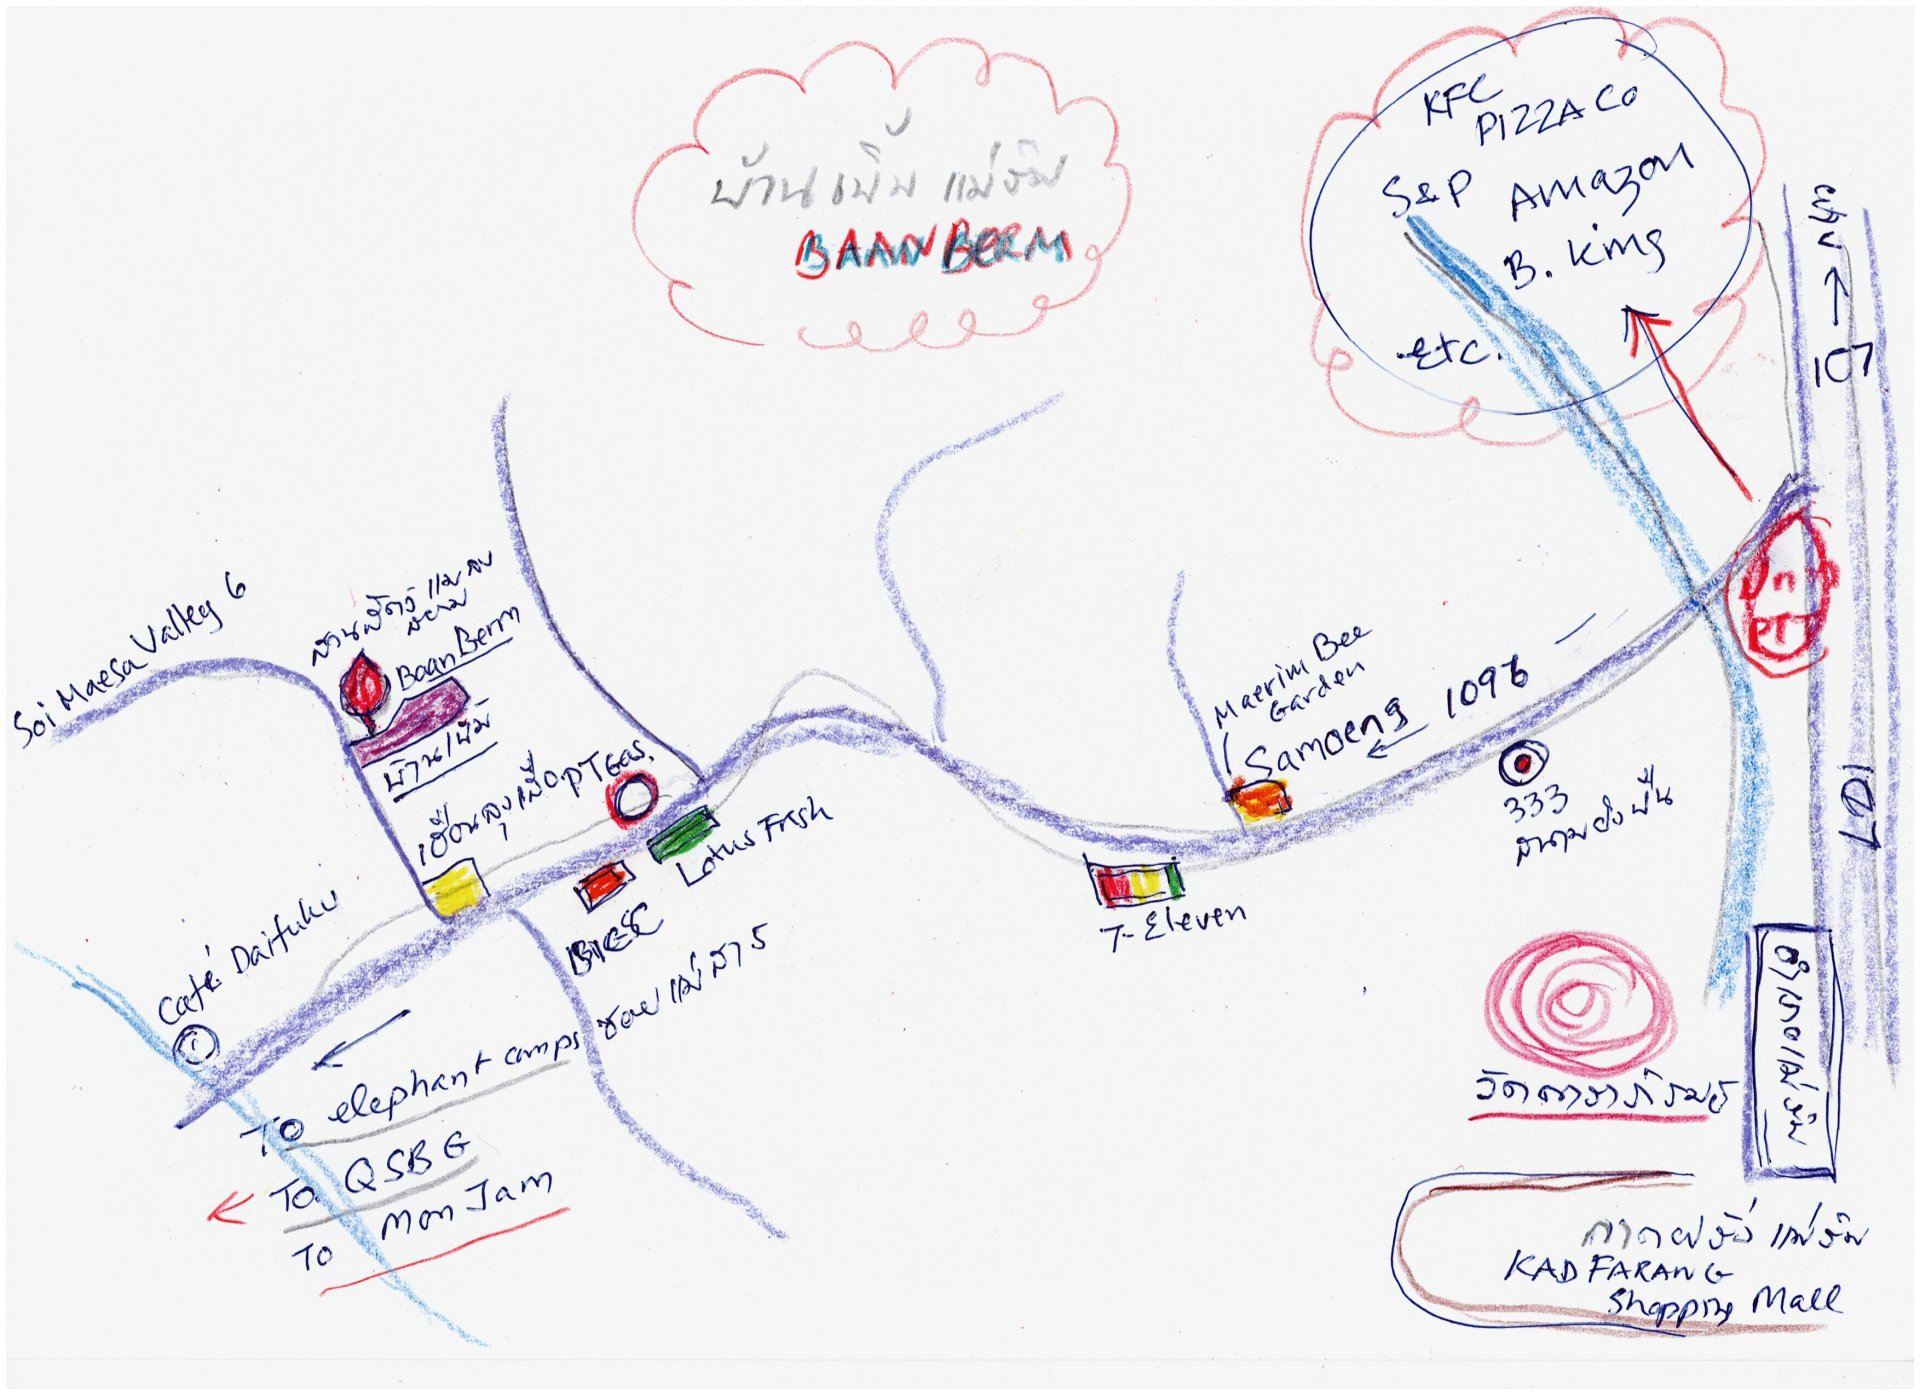 บ้านเพิ่ม แม่ริม
BAAN BERM
KFC
PIZZA Co
S&P Amazon
B. King
etc.
107
ปตท
PTT
Soi Maesa Valley 6
สวนสัตว์แมลง
สยาม
Baan Berm
Maerim Bee
Garden
Samoeng 1096
333
สนามยิงปืน
107
Lotus Fresh
BIG C
7-Eleven
ซอยแม่สา 5
Café Daifuku
To elephant camps
To QSBG
To Mon Jam
วัดดาราภิรมย์
อำเภอแม่ริม
กาดฝรั่ง แม่ริม
KAD FARANG
Shopping Mall